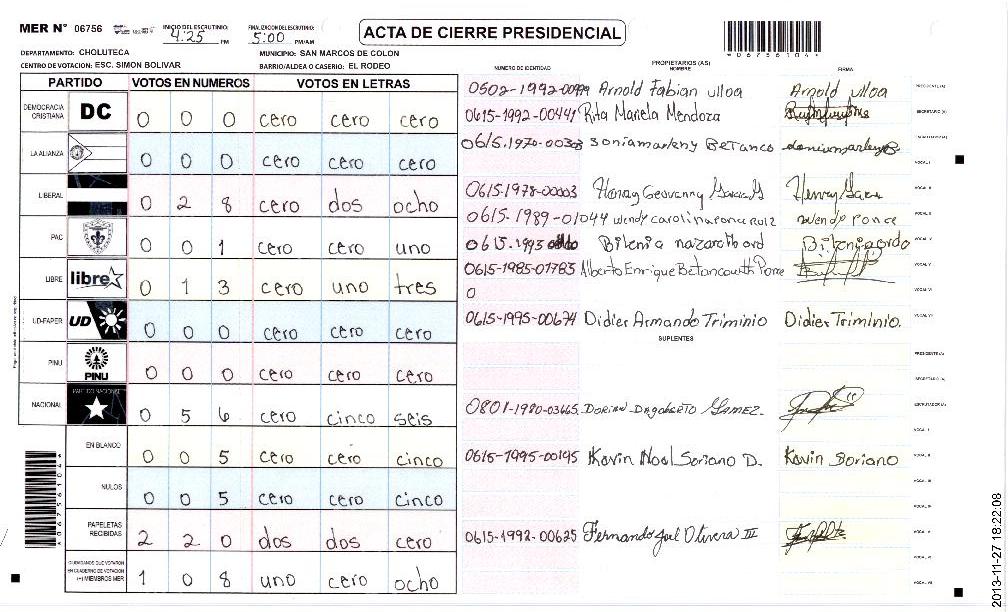 MER N° 06756
INICIO DEL ESCRUTINIO: 4:25 PM
FINALIZACION DEL ESCRUTINIO: 5:00 PM/AM
ACTA DE CIERRE PRESIDENCIAL
*06756104*
DEPARTAMENTO: CHOLUTECA
MUNICIPIO: SAN MARCOS DE COLON
CENTRO DE VOTACION: ESC. SIMON BOLIVAR
BARRIO/ALDEA O CASERIO: EL RODEO
PARTIDO VOTOS EN NUMEROS VOTOS EN LETRAS
DEMOCRACIA CRISTIANA DC 0 0 0 cero cero cero
LA ALIANZA 0 0 0 cero cero cero
LIBERAL 0 2 8 cero dos ocho
PAC 0 0 1 cero cero uno
LIBRE libre 0 1 3 cero uno tres
UD-FAPER UD 0 0 0 cero cero cero
PINU PINU 0 0 0 cero cero cero
NACIONAL PARTIDO NACIONAL 0 5 6 cero cinco seis
EN BLANCO 0 0 5 cero cero cinco
NULOS 0 0 5 cero cero cinco
PAPELETAS RECIBIDAS 2 2 0 dos dos cero
CIUDADANOS QUE VOTARON EN CUADERNO DE VOTACION (+) MIEMBROS MER 1 0 8 uno cero ocho
*06756104*
NUMERO DE IDENTIDAD PROPIETARIOS (AS) NOMBRE FIRMA
0502-1992-00999 Arnold Fabian ulloa Arnold ulloa PRESIDENTE(A)
0615-1992-00441 Rita Mariela Mendoza SECRETARIO(A)
0615.1970-00303 soniamarleny Betanco ESCRUTADOR(A)
VOCAL I
0615-1978-00003 Henry Geovanny Henry VOCAL II
0615-1989-01044 wendy carolina ponce Ruiz wendy ponce VOCAL III
0615.1993 VOCAL IV
0615-1985-01783 Alberto Enrique Betancourth Ponce VOCAL V
0 VOCAL VI
0615-1995-00674 Didier Armando Triminio Didier Triminio. VOCAL VII
SUPLENTES
PRESIDENTE(A)
SECRETARIO(A)
0801-1980-03465 Dorian Dagoberto Gamez. ESCRUTADOR(A)
VOCAL I
0615-1995-00195 Kavin Noel Soriano D. Kavin Soriano VOCAL II
VOCAL III
VOCAL IV
0615-1992-00625 Fernando Joel Olivera III VOCAL V
VOCAL VI
VOCAL VII
2013-11-27 18:22:08